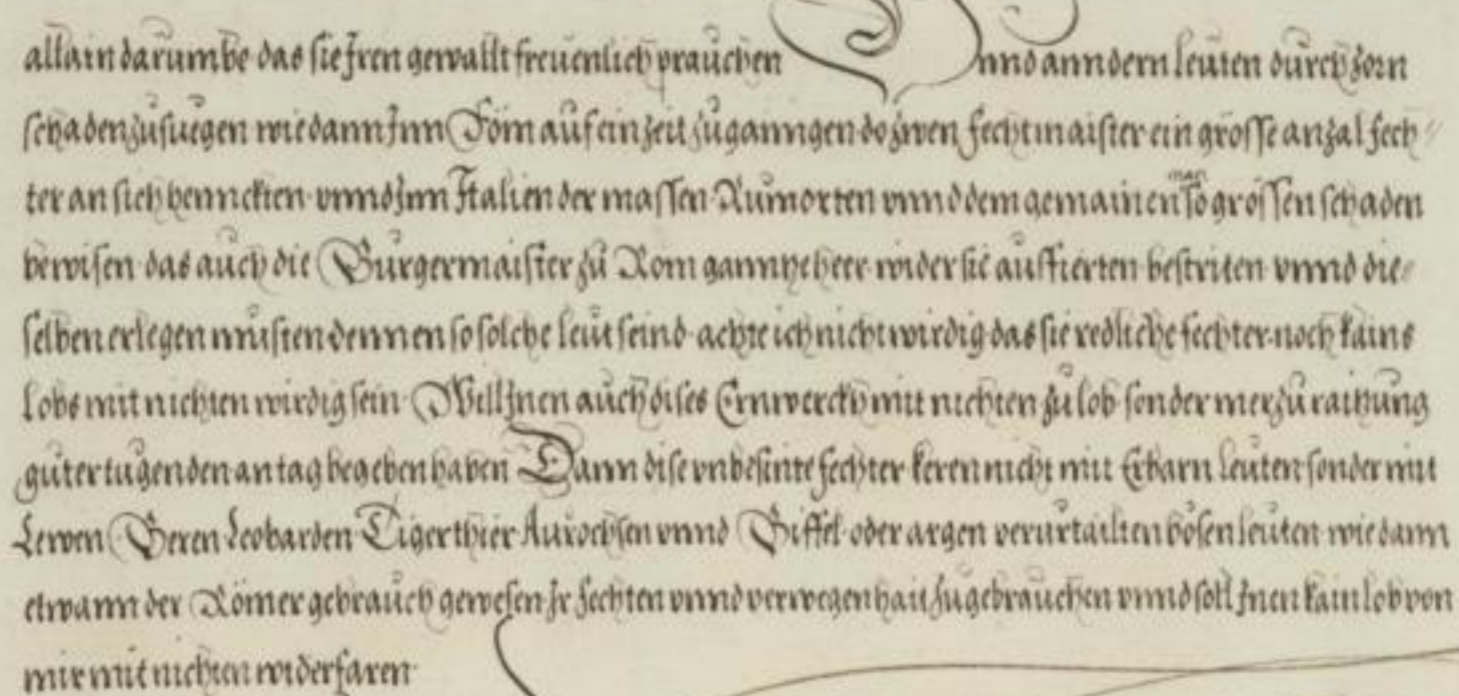 allain darumbe das sie Jren gewallt freuenlich prauchen vnnd anndern leuten durch zorn
schaden zusuegen wie dann Jnn Rom auf ein zeit zuganngen do zwen fechtmaister ein grosse anzal fech=
ter an sich hennckten vnnd Jnn Italien der massen Rumorten vnnd dem gemainen man so grossen schaden
bewisen das auch die Burgermaister zu Rom ganntze heer wider sie ausfierten bestriten vnnd die=
selben erlegen musten dennen so solche leut seind achte ich nicht wirdig das sie redliche fechter noch kains
lobs mit nichten wirdig sein Will Jnen auch dises Ernwerckh mit nichten zu lob sonder mer zu raitzung
guter tugenden an tag begeben haben Dann dise vnbesinte fechter keren nicht mit Erbarn leuten sonder mit
Lewen Beren Leobarden Tigerthier Aurochsen vnnd Biffel oder argen verurtailten bösen leuten wie dann
etwann der Römer gebrauch gewesen Jr fechten vnnd verwegenhait zugebrauchen vnnd soll Jnen kain lob von
mir mit nichten widerfaren